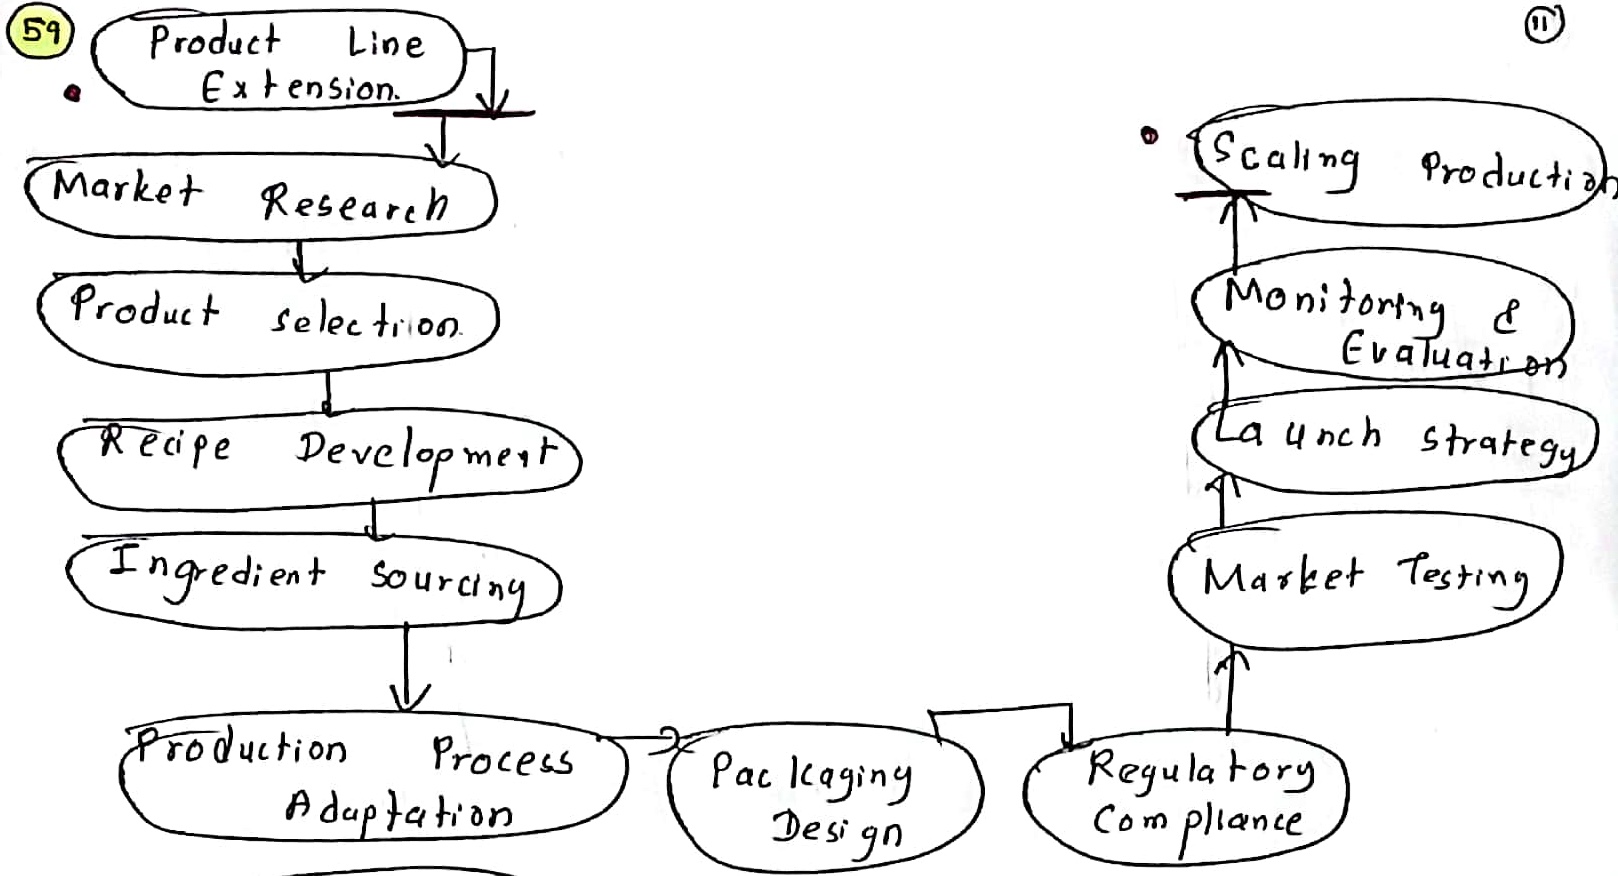 59
11
Product Line
Extension.
Market Research
Product selection
Recipe Development
Ingredient Sourcing
Production Process
Adaptation
Packaging
Design
Regulatory
Compliance
Market Testing
Launch strategy
Monitoring &
Evaluation
Scaling Production